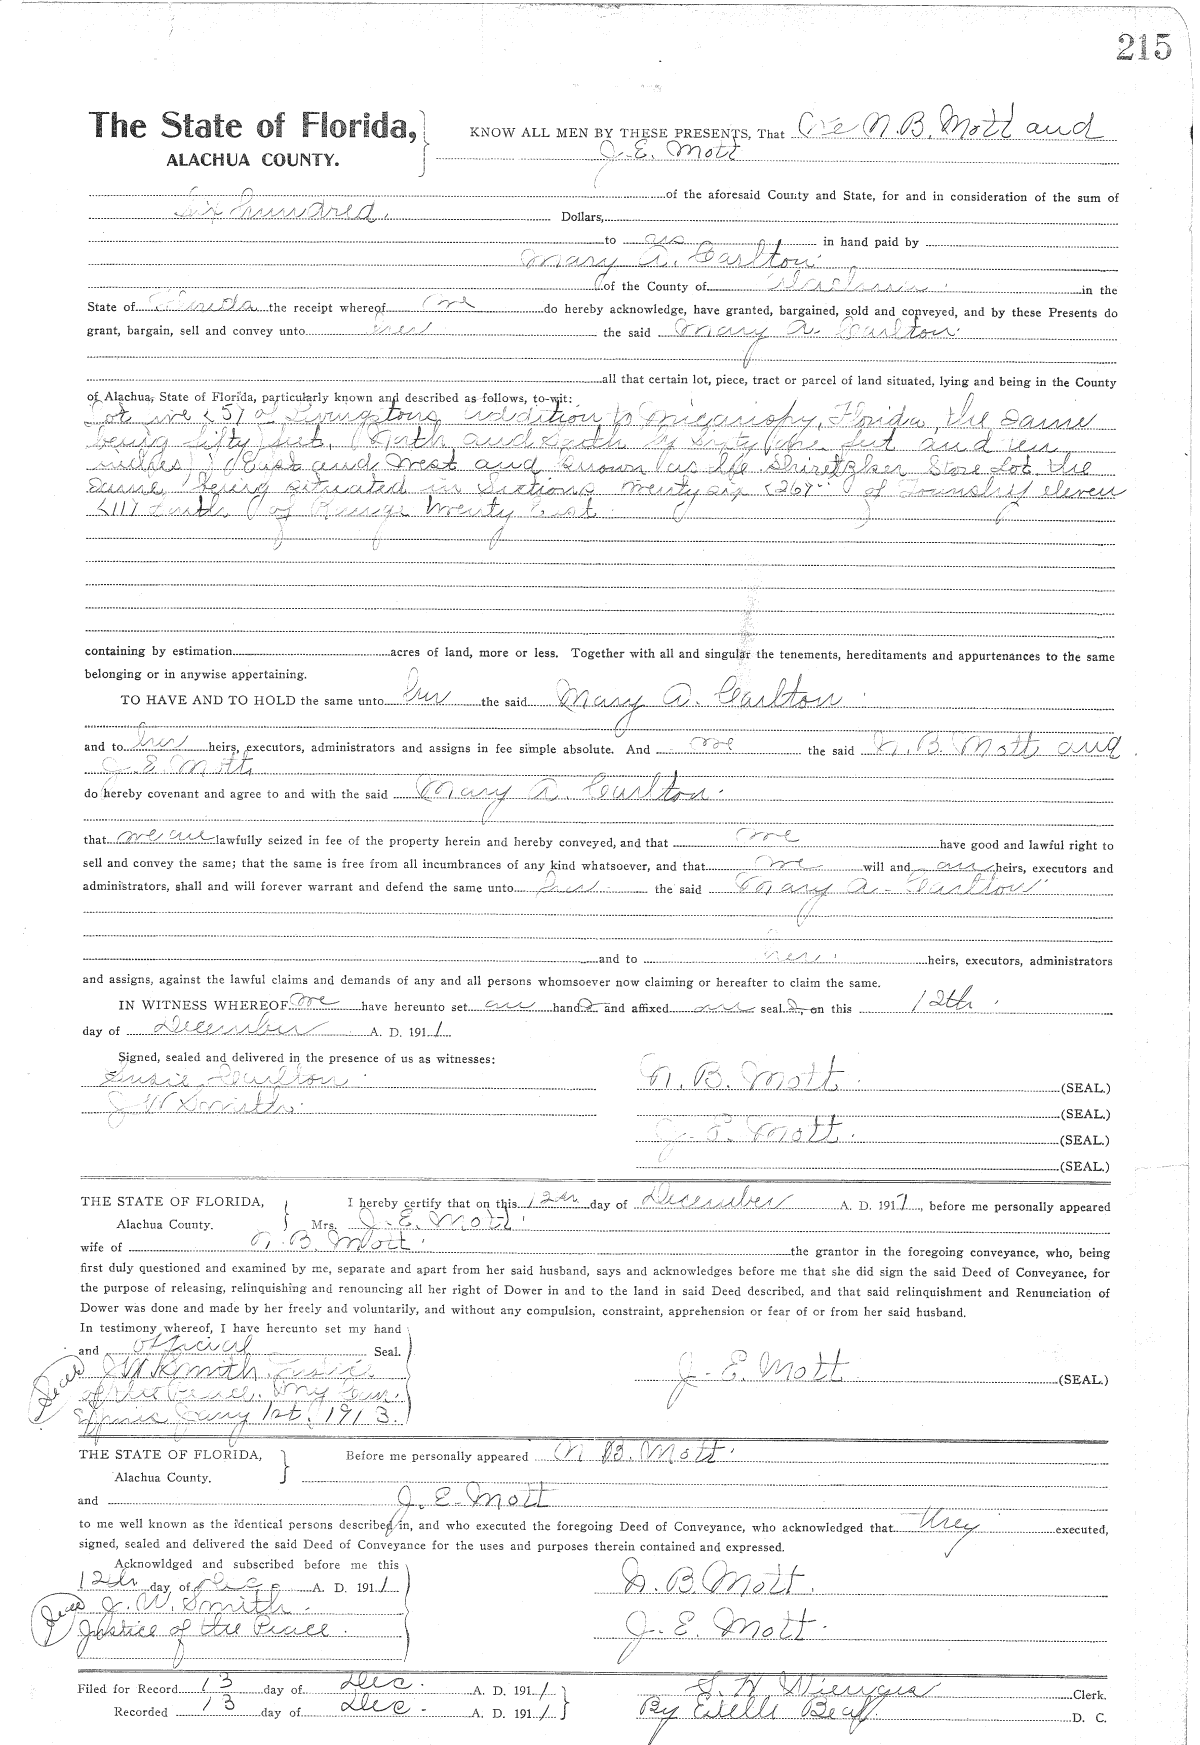 215
The State of Florida,
ALACHUA COUNTY.
KNOW ALL MEN BY THESE PRESENTS, That We N. B. Mott and
J. E. Mott
of the aforesaid County and State, for and in consideration of the sum of
Six hundred. Dollars,
to us in hand paid by
Mary A. Carlton
of the County of Alachua in the
State of Florida the receipt whereof we do hereby acknowledge, have granted, bargained, sold and conveyed, and by these Presents do
grant, bargain, sell and convey unto her the said Mary A. Carlton
all that certain lot, piece, tract or parcel of land situated, lying and being in the County
of Alachua, State of Florida, particularly known and described as follows, to-wit:
Lot five (5) of Livingstons addition to Micanopy, Florida, the same
being fifty feet, North and South by Sixty one feet and ten
inches East and West and known as the Store Lot the
same being situated in Sections twenty six (26) of Township eleven
(11) South of Range twenty East
containing by estimation acres of land, more or less. Together with all and singular the tenements, hereditaments and appurtenances to the same
belonging or in anywise appertaining.
TO HAVE AND TO HOLD the same unto her the said Mary A. Carlton
and to her heirs, executors, administrators and assigns in fee simple absolute. And we the said N. B. Mott and
J. E. Mott
do hereby covenant and agree to and with the said Mary A. Carlton
that we are lawfully seized in fee of the property herein and hereby conveyed, and that we have good and lawful right to
sell and convey the same; that the same is free from all incumbrances of any kind whatsoever, and that we will and our heirs, executors and
administrators, shall and will forever warrant and defend the same unto her the said Mary A. Carlton
and to her heirs, executors, administrators
and assigns, against the lawful claims and demands of any and all persons whomsoever now claiming or hereafter to claim the same.
IN WITNESS WHEREOF we have hereunto set our hands and affixed our seals, on this 12th
day of December A. D. 1911
Signed, sealed and delivered in the presence of us as witnesses:
Susie Carlton
N. B. Mott (SEAL.)
J W Smith
(SEAL.)
J. E. Mott (SEAL.)
(SEAL.)
THE STATE OF FLORIDA, I hereby certify that on this 12th day of December A. D. 1911, before me personally appeared
Alachua County. Mrs. J. E. Mott
wife of N. B. Mott the grantor in the foregoing conveyance, who, being
first duly questioned and examined by me, separate and apart from her said husband, says and acknowledges before me that she did sign the said Deed of Conveyance, for
the purpose of releasing, relinquishing and renouncing all her right of Dower in and to the land in said Deed described, and that said relinquishment and Renunciation of
Dower was done and made by her freely and voluntarily, and without any compulsion, constraint, apprehension or fear of or from her said husband.
In testimony whereof, I have hereunto set my hand
and official Seal.
Seal J W Smith Justice
J. E. Mott (SEAL.)
of the Peace. My Com.
Expires Jany 1st. 1913.
THE STATE OF FLORIDA, Before me personally appeared N. B. Mott
Alachua County.
and J. E. Mott
to me well known as the identical persons described in, and who executed the foregoing Deed of Conveyance, who acknowledged that they executed,
signed, sealed and delivered the said Deed of Conveyance for the uses and purposes therein contained and expressed.
Acknowldged and subscribed before me this
12th day of Dec A. D. 1911
N. B Mott.
Seal J. W. Smith
Justice of the Peace.
J. E. Mott.
Filed for Record 13 day of Dec. A. D. 1911 S. H Wienges Clerk.
Recorded 13 day of Dec. A. D. 1911 By Estelle D. C.